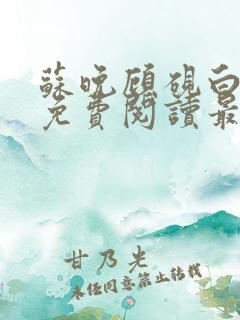 蘇晚顧硯白
免費閱讀最
甘乃光
未經同意禁止轉載